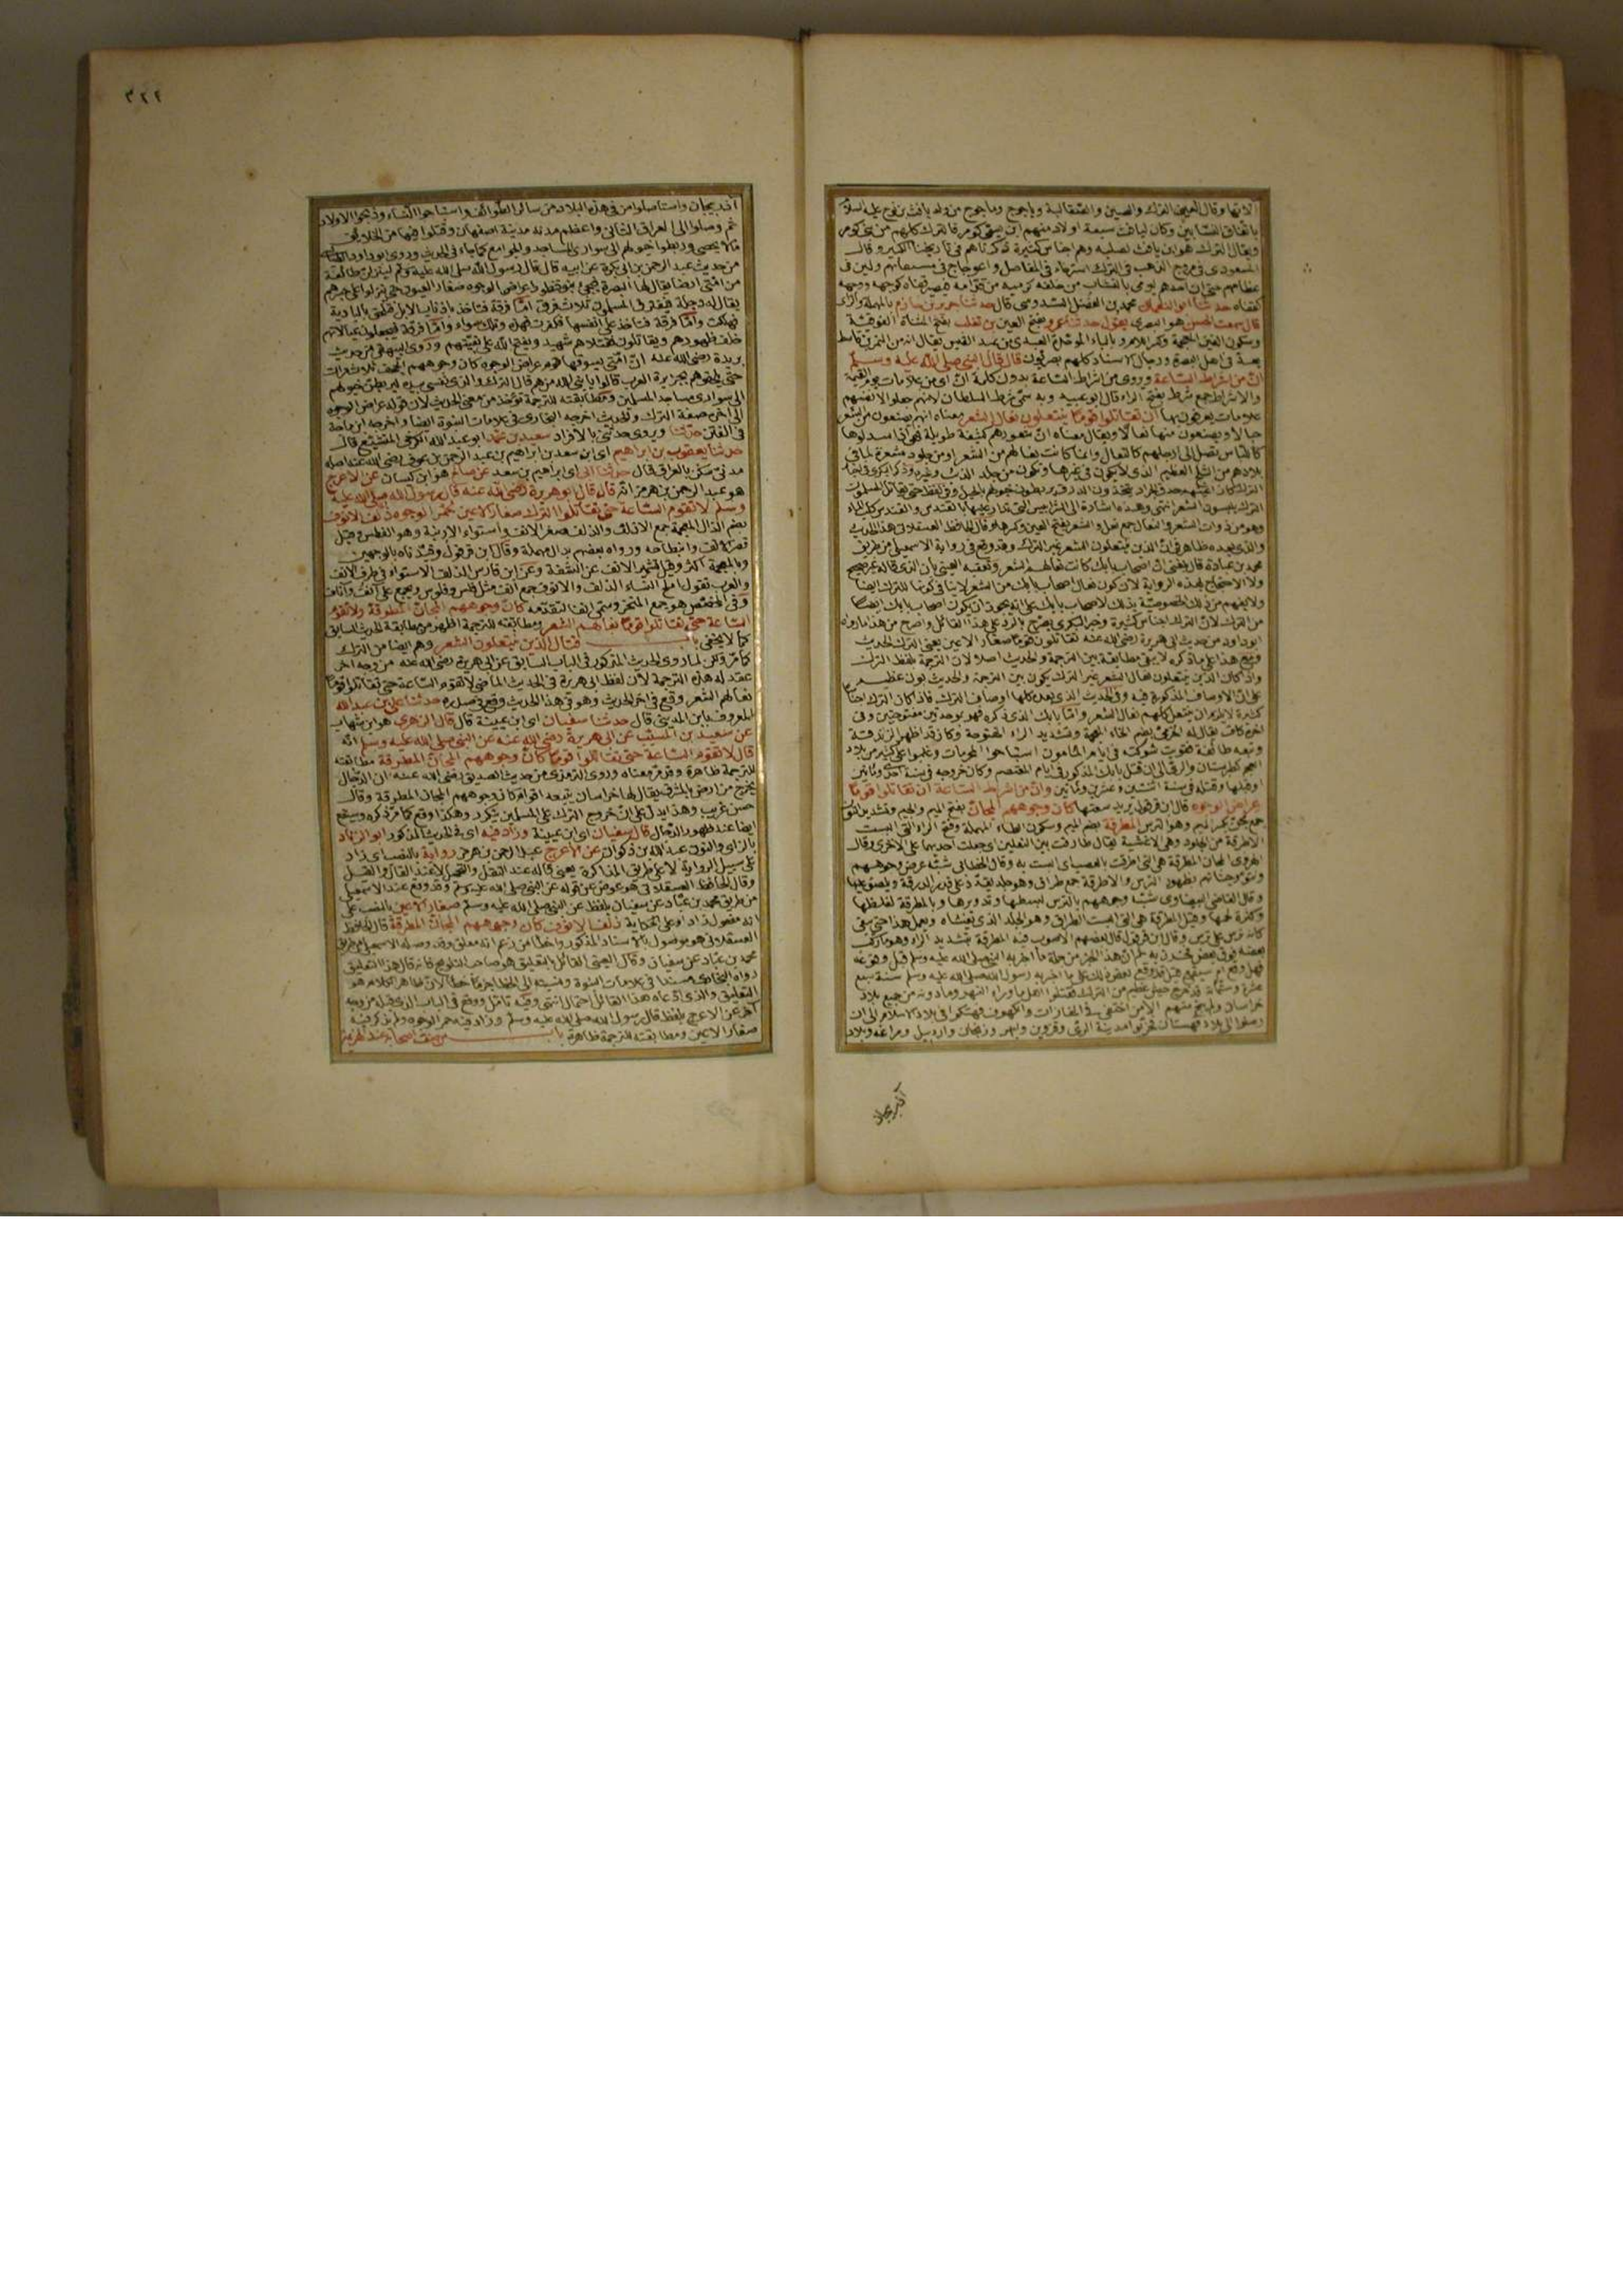 الا انها وقال العيني الترك والصين والصقالبة وياجوج وماجوج من ولد يافث بن نوح عليه السلام
باتفاق النسابين وكان ليافث سبعة اولاد منهم ابن يسمى كومر فالترك كلهم من بني كومر
ويقال الترك هو ابن يافث لصلبه وهم اجناس كثيرة ذكرناهم في تاريخنا الكبير وقال
المسعودي في مروج الذهب في الترك استرخاء في المفاصل واعوجاج في سيقانهم ولين في
عظامهم حتى ان احدهم يرمي بالنشاب من خلفه كرميه من قدامه فيصير قفاه كوجهه ووجهه
كقفاه حدثنا ابو النعمان محمد بن الفضل السدوسي قال حدثنا جرير بن حازم بالمهملة والزاي
قال سمعت الحسن هو البصري يقول حدثنا عمرو بفتح العين بن تغلب بفتح المثناة الفوقية
وسكون الغين المعجمة وكسر اللام وبالباء الموحدة العبدي من عبد القيس يقال انه من النمر بن قاسط
يعد في اهل البصرة ورجال الاسناد كلهم بصريون قال قال النبي صلى الله عليه وسلم
ان من اشراط الساعة وروي من اشراط الساعة بدون كلمة ان اي من علامات يوم القيمة
والاشراط جمع شرط بفتح الراء قال ابو عبيد وبه سمي شرط السلطان لانهم جعلوا لانفسهم
علامات يعرفون بها ان تقاتلوا قوما ينتعلون نعال الشعر معناه انهم يصنعون من الشعر
حبالا ويصنعون منها نعالا ويقال معناه ان شعورهم كثيفة طويلة فهي اذا اسدلوها
كاللباس تصل الى ارجلهم كالنعال وانما كانت نعالهم من الشعر او من جلود مشعرة لما في
بلادهم من الثلج العظيم الذي لا يكون في غيرها وتكون من جلد الذئب وغيره وذكر البكري في اخبار
الترك يلبسون الشعر انتهى وهذه اشارة الى الشرابيش التي تدار عليها بالقندس والقندس كلب الماء
وهو من ذوات الشعر والنعال جمع نعل والشعر بفتح العين وكسرها وقال الحافظ العسقلاني هذا الحديث
والذي بعده ظاهر في ان الذين ينتعلون الشعر غير الترك وقد وقع في رواية الاسمعيلي من طريق
محمد بن عبادة قال بلغني ان اصحاب بابك كانت نعالهم الشعر وتعقبه العيني بان الذي قاله غير صحيح
ولا الاحتجاج بهذه الرواية لان كون نعال اصحاب بابك من الشعر لا ينافي كونها للترك ايضا
من الترك لان الترك اجناس كثيرة وخبر البكري يصرح بالرد على هذا القائل واصرح من هذا ما رواه
ابو داود من حديث ابي هريرة رضي الله عنه تقاتلون قوما صغار الاعين يعني الترك الحديث
ومع هذا على ما ذكره لا يبقى مطابقة بين الترجمة والحديث اصلا لان الترجمة بلفظ الترك
واذا كان الذين ينتعلون نعال الشعر غير الترك يكون بين الترجمة والحديث بون عظيم
على ان الاوصاف المذكورة فيه وفي الحديث الذي بعده كلها اوصاف الترك فاذا كان الترك اجناسا
كثيرة لا يلزم ان ينتعل كلهم نعال الشعر واما بابك الذي ذكره فهو بموحدتين مفتوحتين وفي
اخره كاف يقال له الخرمي بضم الخاء المعجمة وتشديد الراء المفتوحة وكان قد اظهر الزندقة
وتبعه طائفة فقويت شوكته في ايام المامون استباحوا المحرمات وغلبوا على كثير من بلاد
العجم كطبرستان والري الى ان قتل بابك المذكور في ايام المعتصم وكان خروجه في سنة احدى ومائتين
او قبلها وقتله في سنة اثنتين وعشرين ومائتين وان من اشراط الساعة ان تقاتلوا قوما
عراض الوجوه قال ابن قرقول يريد سعتها كان وجوههم المجان بفتح الميم والجيم وتشديد النون
جمع مجن بكسر الميم وهو الترس المطرقة بضم الميم وسكون الطاء المهملة وفتح الراء التي البست
الاطرقة من الجلود وهي الاغشية يقال طارقت بين النعلين اي جعلت احديهما على الاخرى وقال
الهروي المجان المطرقة هي التي اطرقت بالعصب اي البست به وقال الخطابي شبه عرض وجوههم
ونتو وجناتهم بظهور الترس والاطرقة جمع طراق وهو جلد يقدر على قدر الدرقة ويلصق عليها
وقال القاضي البيضاوي شبه وجوههم بالترس لبسطها وتدويرها وبالمطرقة لغلظها
وكثرة لحمها وقيل المطرقة هي التي البست الطراق وهو الجلد الذي يغشاه ويعمل هذا حتى يبقى
كانه ترس على ترس وقال ابن قرقول قال بعضهم الاصوب فيه المطرقة بتشديد الراء وهو ما ركب
بعضه فوق بعض
عشرة وستمائة قد خرج جيش عظيم من الترك فقتلوا اهل ما وراء النهر وما دونه من جميع بلاد
خراسان ولم ينج منهم الا من اختفى في المغارات والكهوف فهتكوا في بلاد الاسلام الى ان
وصلوا الى بلاد قهستان فخربوا مدينة الري وقزوين وابهر وزنجان واردبيل ومراغة وبلاد
اذربيجان
٣٢٢
اذربيجان واستاصلوا من في هذه البلاد من سائر الطوائف واستباحوا النساء وذبحوا الاولاد
ثم وصلوا الى العراق الثاني واعظم مدنه مدينة اصفهان وقتلوا فيها من الخلايق
ما لا يحصى وربطوا خيولهم الى سواري المساجد والجوامع كما جاء في الحديث وروى ابو داود
من حديث عبد الرحمن بن ابي بكرة عن ابيه قال قال رسول الله صلى الله عليه وسلم لينزلن طائفة
من امتي ارضا يقال لها البصرة فيجيء بنو قنطورا عراض الوجوه صغار العيون حتى ينزلوا على جسرهم
يقال له دجلة فيفترق المسلمون ثلاث فرق اما فرقة فتاخذ باذناب الابل فتلحق بالبادية
فهلكت واما فرقة فتاخذ على انفسها فكفرت فهذه وتلك سواء واما فرقة فيجعلون عيالاتهم
خلف ظهورهم ويقاتلون فقتلاهم شهيد ويفتح الله على بقيتهم وروى البيهقي من حديث
بريدة رضي الله عنه ان امتي يسوقها قوم عراض الوجوه كان وجوههم الحجف ثلاث مرات
حتى يلحقوهم بجزيرة العرب قالوا يا نبي الله من هم قال الترك والذي نفسي بيده ليربطن خيولهم
الى سواري مساجد المسلمين ومطابقته للترجمة تؤخذ من معنى الحديث لان قوله عراض الوجوه
الى اخره صفة الترك والحديث اخرجه البخاري في علامات النبوة ايضا واخرجه ابن ماجة
في الفتن حدثنا ويروى حدثني بالافراد سعيد بن محمد ابو عبد الله الكوفي المتشيع قال
حدثنا يعقوب بن ابراهيم اي ابن سعد بن ابراهيم بن عبد الرحمن بن عوف رضي الله عنه اصله
مدني سكن بالعراق قال حدثنا ابي اي ابراهيم بن سعد عن صالح هو ابن كيسان عن الاعرج
هو عبد الرحمن بن هرمز انه قال قال ابو هريرة رضي الله عنه قال رسول الله صلى الله عليه
وسلم لا تقوم الساعة حتى تقاتلوا الترك صغار الاعين حمر الوجوه ذلف الانوف
بضم الذال المعجمة جمع الاذلف والذلف صغر الانف واستواء الارنبة وهو الفطس وقيل
قصر الانف وانبطاحه ورواه بعضهم بدال مهملة وقال ابن قرقول وقيدناه بالوجهين
وبالمعجمة اكثر وقيل تشمير الانف عن الشفة وعن ابن فارس الذلف الاستواء في طرف الانف
والعرب تقول املح النساء الذلف والانوف جمع انف مثل فلس وفلوس ويجمع على آنف وآناف
وفي المخصص هو جمع المنخر وسمي انفا لتقدمه كان وجوههم المجان المطرقة ولا تقوم
الساعة حتى تقاتلوا قوما نعالهم الشعر ومطابقته للترجمة اظهر من مطابقة الحديث السابق
كما لا يخفى باب قتال الذين ينتعلون الشعر وهم ايضا من الترك
كما مر ولكن لما روى الحديث المذكور في الباب السابق عن ابي هريرة رضي الله عنه من وجه اخر
عقد له هذه الترجمة لان لفظ ابي هريرة في الحديث الماضي لا تقوم الساعة حتى تقاتلوا قوما
نعالهم الشعر وقع في اخر الحديث وهو في هذا الحديث وقع في صدره حدثنا علي بن عبد الله
المعروف بابن المديني قال حدثنا سفيان اي ابن عيينة قال قال الزهري هو ابن شهاب
عن سعيد بن المسيب عن ابي هريرة رضي الله عنه عن النبي صلى الله عليه وسلم انه
قال لا تقوم الساعة حتى تقاتلوا قوما كان وجوههم المجان المطرقة مطابقته
للترجمة ظاهرة وقد مر معناه وروى الترمذي من حديث الصديق رضي الله عنه ان الدجال
يخرج من ارض بالمشرق يقال لها خراسان يتبعه اقوام كان وجوههم المجان المطرقة وقال
حسن غريب وهذا يدل على ان خروج الترك على المسلمين يتكرر وهكذا وقع كما مر ذكره وسيقع
ايضا عند ظهور الدجال قال سفيان اي ابن عيينة وزاد فيه اي في الحديث المذكور ابو الزناد
بالزاي والنون عبد الله بن ذكوان عن الاعرج عبد الرحمن بن هرمز رواية بالنصب اي زاد
على سبيل الرواية لا على طريق المذاكرة يعني قاله عند النقل والتحمل لا عند القال والقيل
وقال الحافظ العسقلاني هو عوض عن قوله عن النبي صلى الله عليه وسلم وقد وقع عند الاسمعيلي
من طريق محمد بن عباد عن سفيان بلفظ عن النبي صلى الله عليه وسلم صغار الاعين بالنصب على
انه مفعول زاد او على الحكاية ذلف الانوف كان وجوههم المجان المطرقة قال الحافظ
العسقلاني هو موصول بالاسناد المذكور واخطا من زعم انه معلق وقد وصله الاسمعيلي من طريق
محمد بن عباد عن سفيان وقال العيني القائل بالتعليق هو صاحب التلويح فانه قال هذا التعليق
رواه البخاري مسندا في علامات النبوة ونسبته الى الخطا جزما خطا لان ظاهر الكلام هو
التعليق والذي ادعاه هذا القائل احتمال انتهى وفيه تامل ووقع في الباب الذي قبله من وجه
آخر عن الاعرج بلفظ قال رسول الله صلى الله عليه وسلم وزاد فيه حمر الوجوه ولم يذكر فيه
صغار الاعين ومطابقته للترجمة ظاهرة باب من صف اصحابه عند الهزيمة